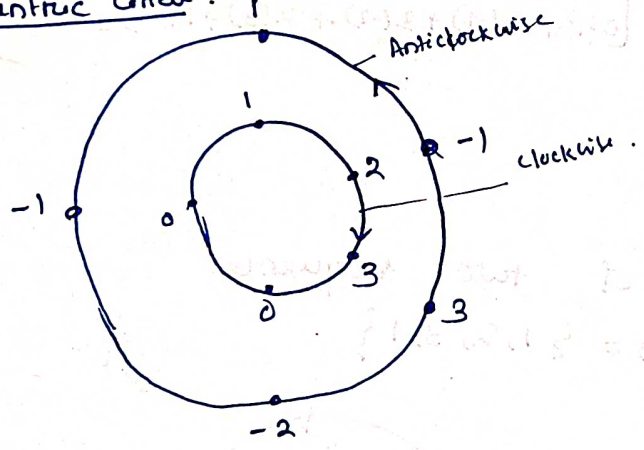 1
Anticlockwise
1
-1
2
clockwise.
-1
0
3
0
3
-2